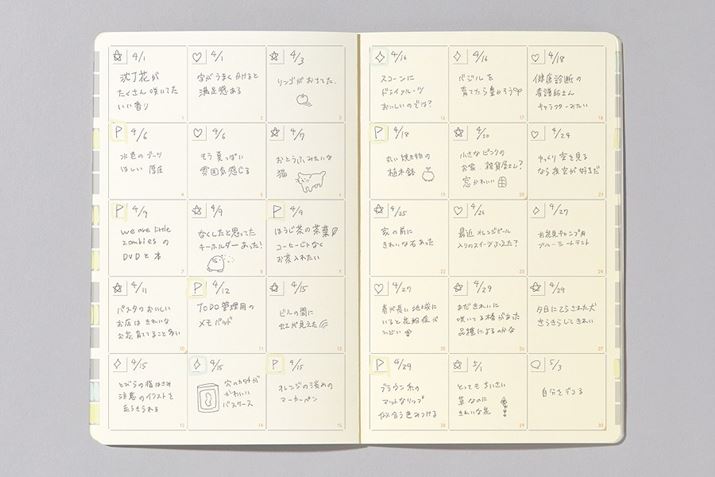 4/1
沈丁花が
たくさん咲いてた
いい香り
1
4/1
字がうまくかけると
満足感ある
2
4/3
リンゴがおちてた。
3
4/6
水色のブーツ
ほしい 厚底
4
4/6
もう夏っぽい
雰囲気感じる
5
4/7
おとうふみたいな
猫
6
4/9
we are little
zombies の
DVDと本
7
4/9
なくしたと思ってた
キーホルダーあった!
8
4/9
ほうじ茶の茶葉
コーヒーじゃなく
お茶入れたい
9
4/11
パスタのおいしい
お店は きれいな
お花育ててること多い
10
4/12
TODO管理用の
メモパッド
11
4/15
ビルの間に
虹が見えた
12
4/15
とびらの指はさみ
注意のイラストを
13
4/15
穴のカタチが
かわいい
パスケース
14
4/15
オレンジの濃いめの
マーカーペン
15
4/16
スコーンに
ドライフルーツ
おいしいのでは?
16
4/16
バジルを
育てたら豊かそう
17
4/18
健康診断の
看護師さん
キャラクターみたい
18
4/18
丸い焼き物の
植木鉢
19
4/20
小さなピンクの
お家 雑貨屋さん?
窓かわいい
20
4/24
ゆっくり空を見る
なら夜空が好きだ
21
4/25
家の前に
きれいな石あった
22
4/26
最近オレンジピール
入りのスイーツふえた?
23
4/27
お花見キャンプ用
ブルーシート テント
24
4/27
背が高い
いると花粉症が
25
4/29
まだきれいに
咲いてる桜があった
品種によるのかな
26
4/29
夕日にてらされた犬
きらきらしてきれい
27
4/29
ブラウン系の
マットなリップ
似合う色みつける
28
5/1
とっても ちいさい
草なのに
きれいな花
29
5/3
自分をデコる
30